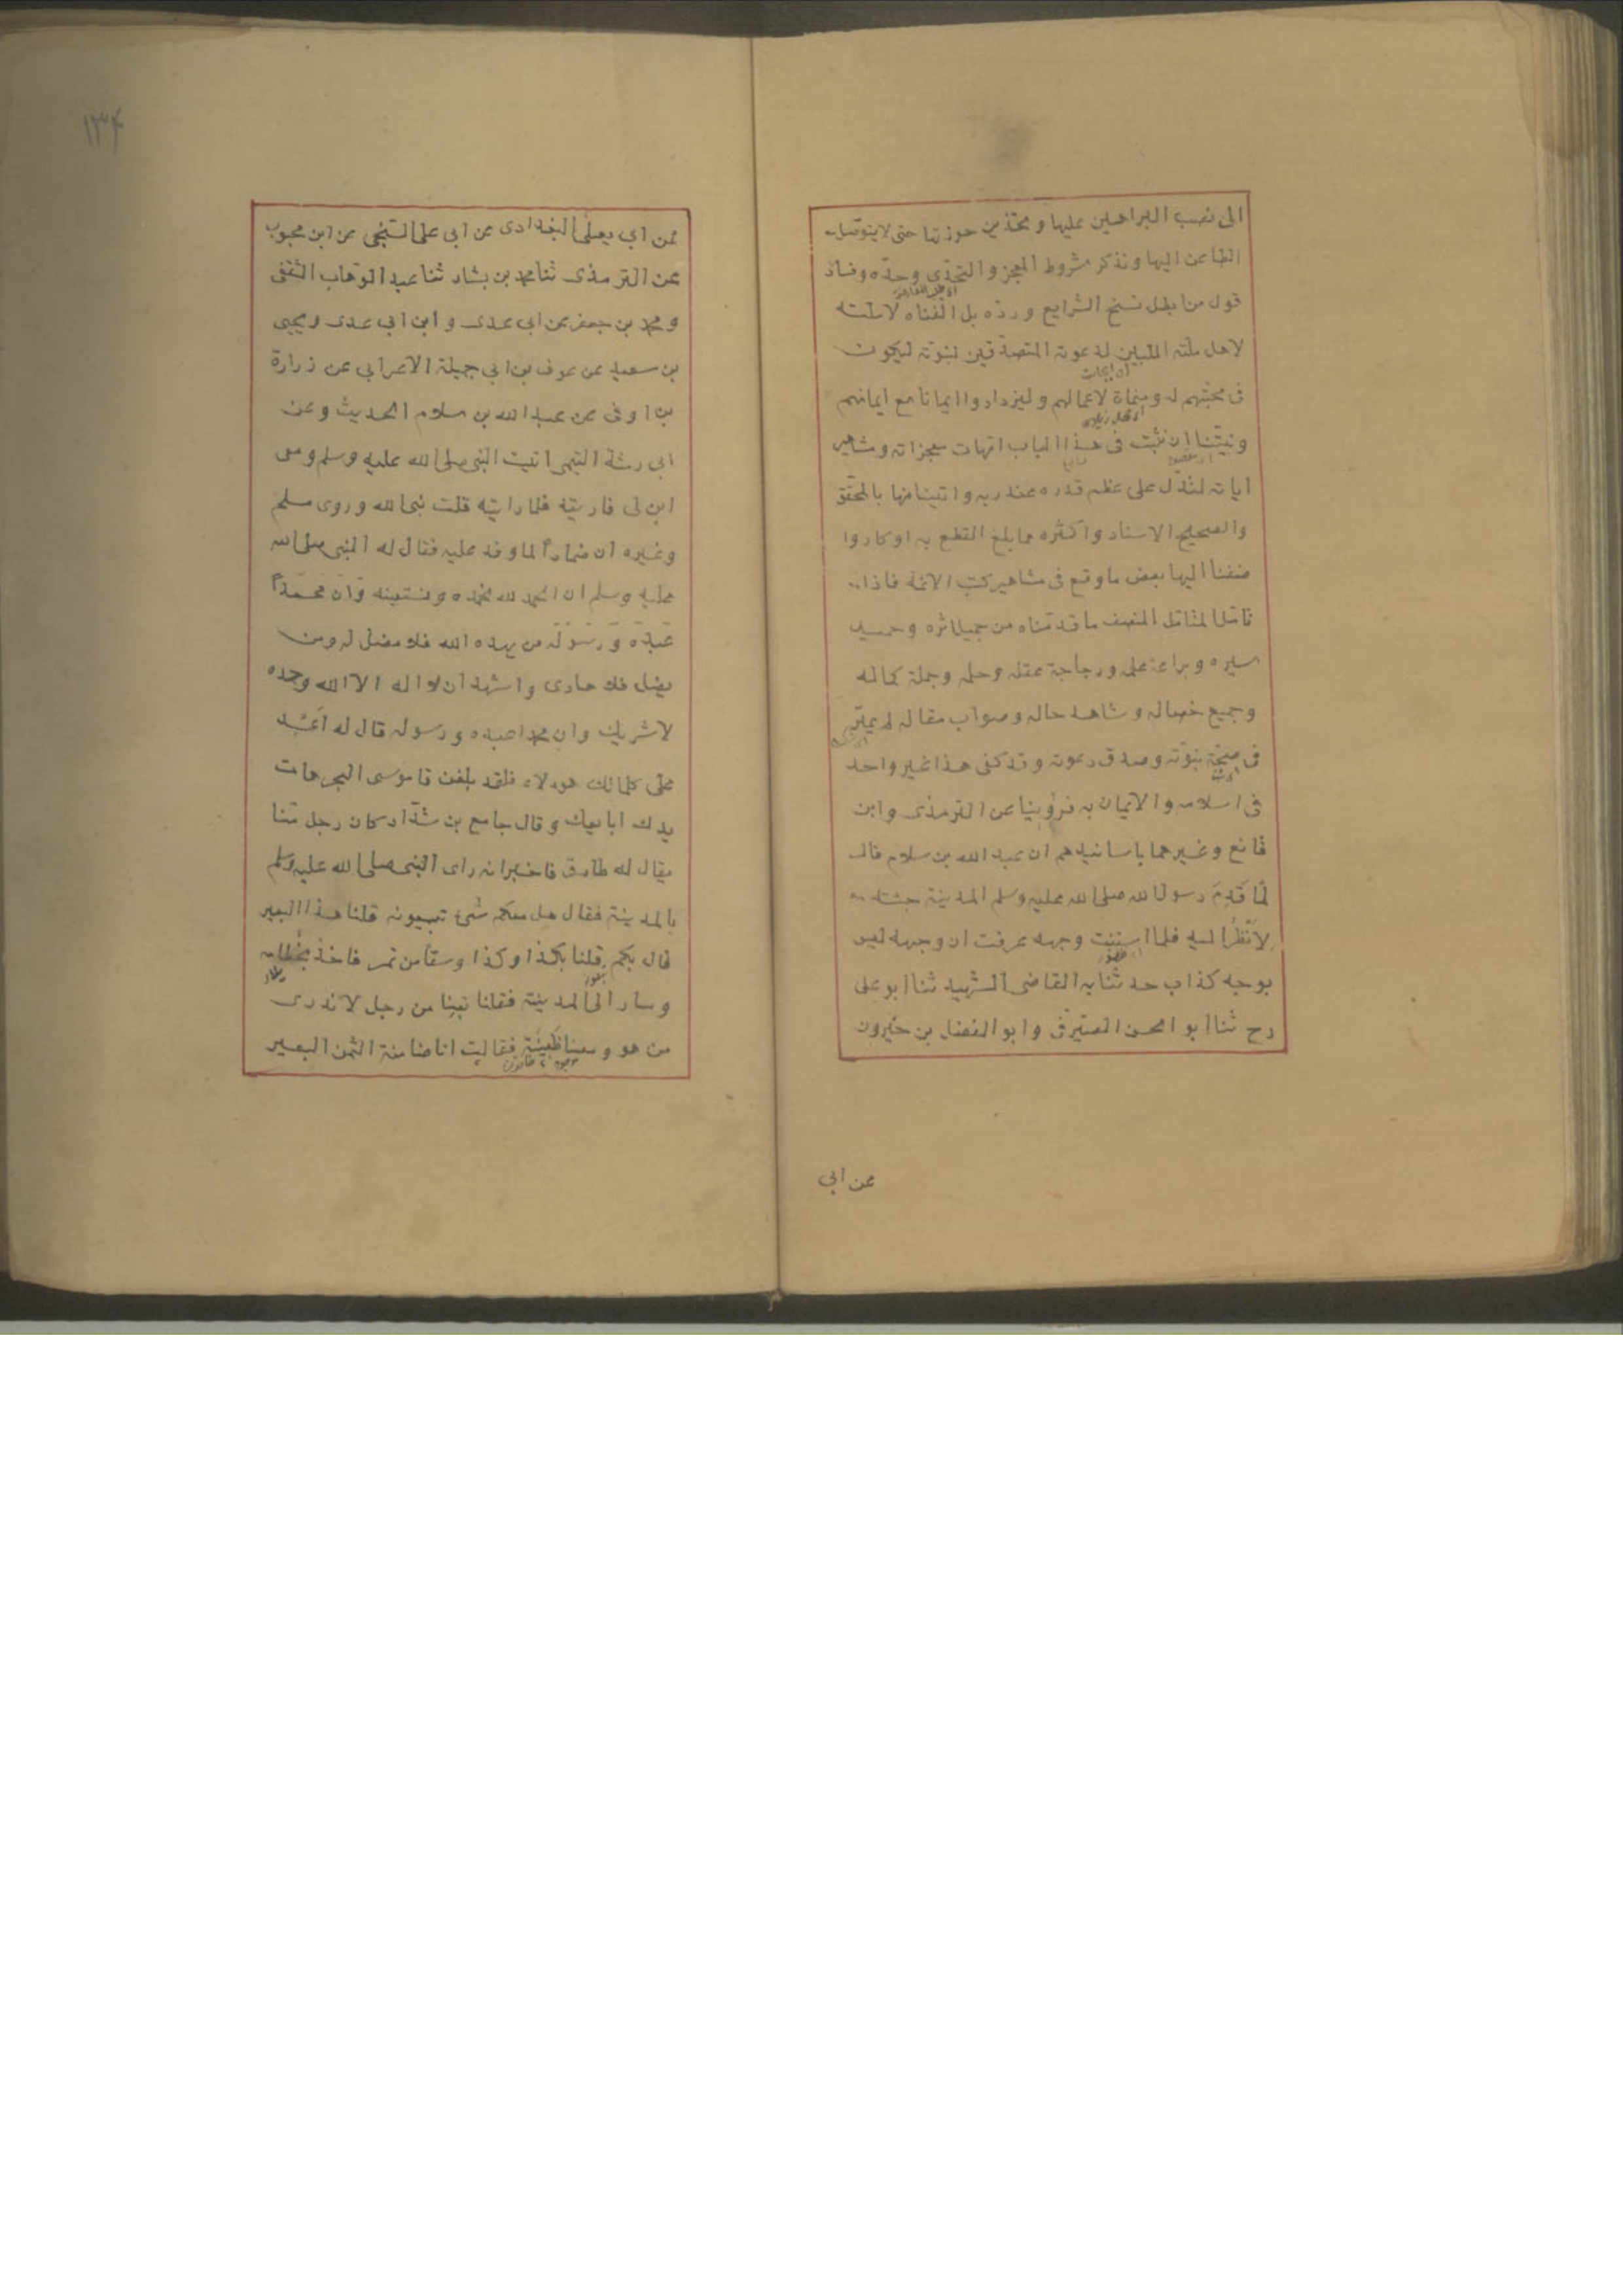 الى نصب البراهين عليها و تحذين حوزتها حتى لا يتوصل
الطاعن اليها ونذكر شروط المعجز و التحدّى وحدّه وفساد
قول من ابطل نسخ الشرايع و ردّه بل الفناه لاملته
لاهل ملّته الملبين لدعوته المتصدّقين لنبوّته ليكون
فى محبّتهم له ومنماة لاعمالهم وليزدادوا ايمانا مع ايمانهم
ونيّتنا ان نثبت فى هذا الباب امّهات معجزاته ومشاهير
اياته لتدّل على عظم قدره عند ربه واتينا منها بالمحقّق
والصحيح الاسناد واكثره مما بلغ القطع به او كاد وا
ضفنا اليها بعض ما وقع فى مشاهير كتب الائمة فاذا
تامّل المتامّل المنصف ما قدمناه من جميل اثره وحميد
سيره وبراعة علمه ورجاحة عقله وحلمه وجملة كماله
وجميع خصاله وشاهد حاله وصواب مقاله لم يمتر
فى صحّة نبوّته وصدق دعوته وقد كفى هذا غير واحد
فى اسلامه والايمان به فروينا عن الترمذى وابن
قانع وغيرهما باسانيدهم ان عبد الله بن سلام قال
لمّا قَدِمَ رسول الله صلى الله عليه وسلم المدينة جئته
لاَنْظُرَ اليه فلما استبنت وجهه عرفت ان وجهه ليس
بوجه كذاب حدثنا به القاضى الشهيد ثنا ابو على
رح ثنا ابو الحسن الصّيرفى وابو الفضل بن خيرون
عن ابي
١٣٤
عن ابي يعلى البغدادى عن ابى على السّنجى عن ابن محبوب
عن الترمذى ثنا محمد بن بشار ثنا عبد الوهّاب الثقفى
و محمد بن جعفر عن ابى عدى و ابن ابى عدى ويحيى
بن سعيد عن عوف بن ابى جميلة الاعرابى عن زرارة
بن اوفى عن عبد الله بن سلام الحديث وعن
ابى رمثة التيمى اتيت النبى صلى الله عليه وسلم ومعى
ابن لى فاريته فلما رايته قلت نبى الله وروى مسلم
وغيره ان ضماداً لما وفد عليه فقال له النبى صلى الله
عليه وسلم ان الحمد لله نحمده ونستعينه وَانّ محمّداً
عَبْدُه وَرسُولُه من يهده الله فلا مضل له ومن
يضل فلا هادى واشهد ان لا اله الا الله وحده
لاشريك وان محمدا عبده و رسوله قال له اَعِدْ
علىّ كلماتك هولاء فلقد بلغن قاموس البحر هات
يدك ابايعك وقال جامع بن شدّاد كان رجل منّا
يقال له طارق فاخبر انه راى النبى صلى الله عليه وسلم
بالمدينة فقال هل معكم شئ تبيعونه قلنا هذا البعير
قال بكم قلنا بكذا وكذا وسقا من تمر فاخذ بخُطامه
وسار الى المدينة فقلنا بعنا من رجل لاندرى
من هو ومعنا ظَعِينَة فقالت انا ضامنة الثمن البعير